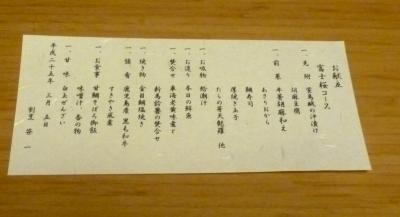 お献立
富士桜コース
一、先附 蛍烏賊の沖漬け
胡麻豆腐
一、前菜 牛蒡胡麻和え
あさりおから
鯛寿司
厚焼き玉子
たらの芽天麩羅 他
一、お吸物 蛤潮汁
一、お造り 本日の鮮魚
一、焚合せ
一、焼き物 金目鯛塩焼き
一、強肴 鹿児島産 黒毛和牛
すきやき風煮
一、お食事 甘鯛そぼろ御飯
味噌汁、香の物
一、甘味 白玉ぜんざい
平成二十五年 三月 五日
割烹 笹一